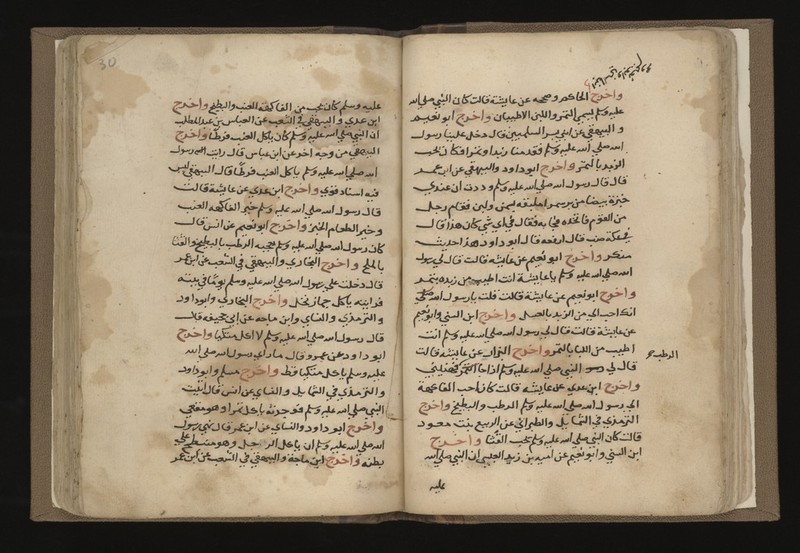 واخرج الحاكم وصححه عن عايشة قالت كان النبي صلى الله
عليه وسلم يسمي التمر واللبن الاطيبان واخرج ابو نعيم
و البيهقي عن ابني بسر السلميين قال دخل علينا رسول
الله صلى الله عليه وسلم فقدمنا زبدا وتمرا فكان يحب
الزبد بالتمر واخرج ابو داود والبيهقي عن ابن عمر
قال قال رسول الله صلى الله عليه وسلم وددت ان عندي
خبزة بيضا من بر سمرا ملبقة بسمن ولبن فقام رجل
من القوم فاتخذه فجا به فقال في اي شي كان هذا قال
في عكة ضب قال ارفعه قال ابو داود هذا حديث
منكر واخرج ابو نعيم عن عايشة قالت قال لي رسول
الله صلى الله عليه وسلم يا عايشة انت اطيب من زبده بتمر
واخرج ابو نعيم عن عايشة قالت قلت يا رسول الله صلى
انك احب الي من الزبد بالعسل واخرج ابن السني وابو نعيم
عن عايشة قالت قال لي رسول الله صلى الله عليه وسلم انت
اطيب من اللبا بالتمر واخرج البزار عن عايشة قالت
قال لي رسول النبي صلى الله عليه وسلم اذا جا الرطب فهنيني
الرطب
واخرج ابن عدي عن عايشة قالت كان احب الفاكهة
الى رسول الله صلى الله عليه وسلم الرطب والبطيخ واخرج
الترمذي في الشمايل والطبراني عن الربيع بنت معوذ
قالت كان النبي صلى الله عليه وسلم يحب القثا واخرج
ابن السني وابو نعيم عن اميه بن زيد العبسي ان النبي صلى الله
عليه
30
عليه وسلم كان يحب من الفاكهة العنب والبطيخ واخرج
ابن عدي والبيهقي في الشعب عن العباس بن عبد المطلب
ان النبي صلى الله عليه وسلم كان ياكل العنب خرطا واخرج
البيهقي من وجه اخر عن ابن عباس قال رايت رسول
الله صلى الله عليه وسلم ياكل العنب خرطا قال البيهقي ليس
فيه اسناد قوي واخرج ابن عدي عن عايشة قالت
قال رسول الله صلى الله عليه وسلم خير الفاكهة العنب
وخير الطعام الخبز واخرج ابو نعيم عن انس قال
كان رسول الله صلى الله عليه وسلم يعجبه الرطب بالبطيخ والقثا
بالملح واخرج البخاري والبيهقي في الشعب عن ابن عمر
قال دخلت على رسول الله صلى الله عليه وسلم يوما في بيته
فرايته ياكل جمار نخل واخرج البخاري وابو داود
والترمذي والنساي وابن ماجه عن ابي جحيفه قال
قال رسول الله صلى الله عليه وسلم لا اكل متكيا واخرج
ابو داود عن عمرو قال ما راي رسول الله صلى الله
عليه وسلم ياكل متكيا قط واخرج مسلم وابو داود
والترمذي في الشمايل والنساي عن انس قال اتيت
النبي صلى الله عليه وسلم فوجدته ياكل تمرا وهو مقعي
واخرج ابو داود والنساي عن ابن عمر قال نهى رسول
الله صلى الله عليه وسلم ان ياكل الرجل وهو منبطح على
بطنه واخرج ابن ماجه والبيهقي في الشعب عن ابن عمر